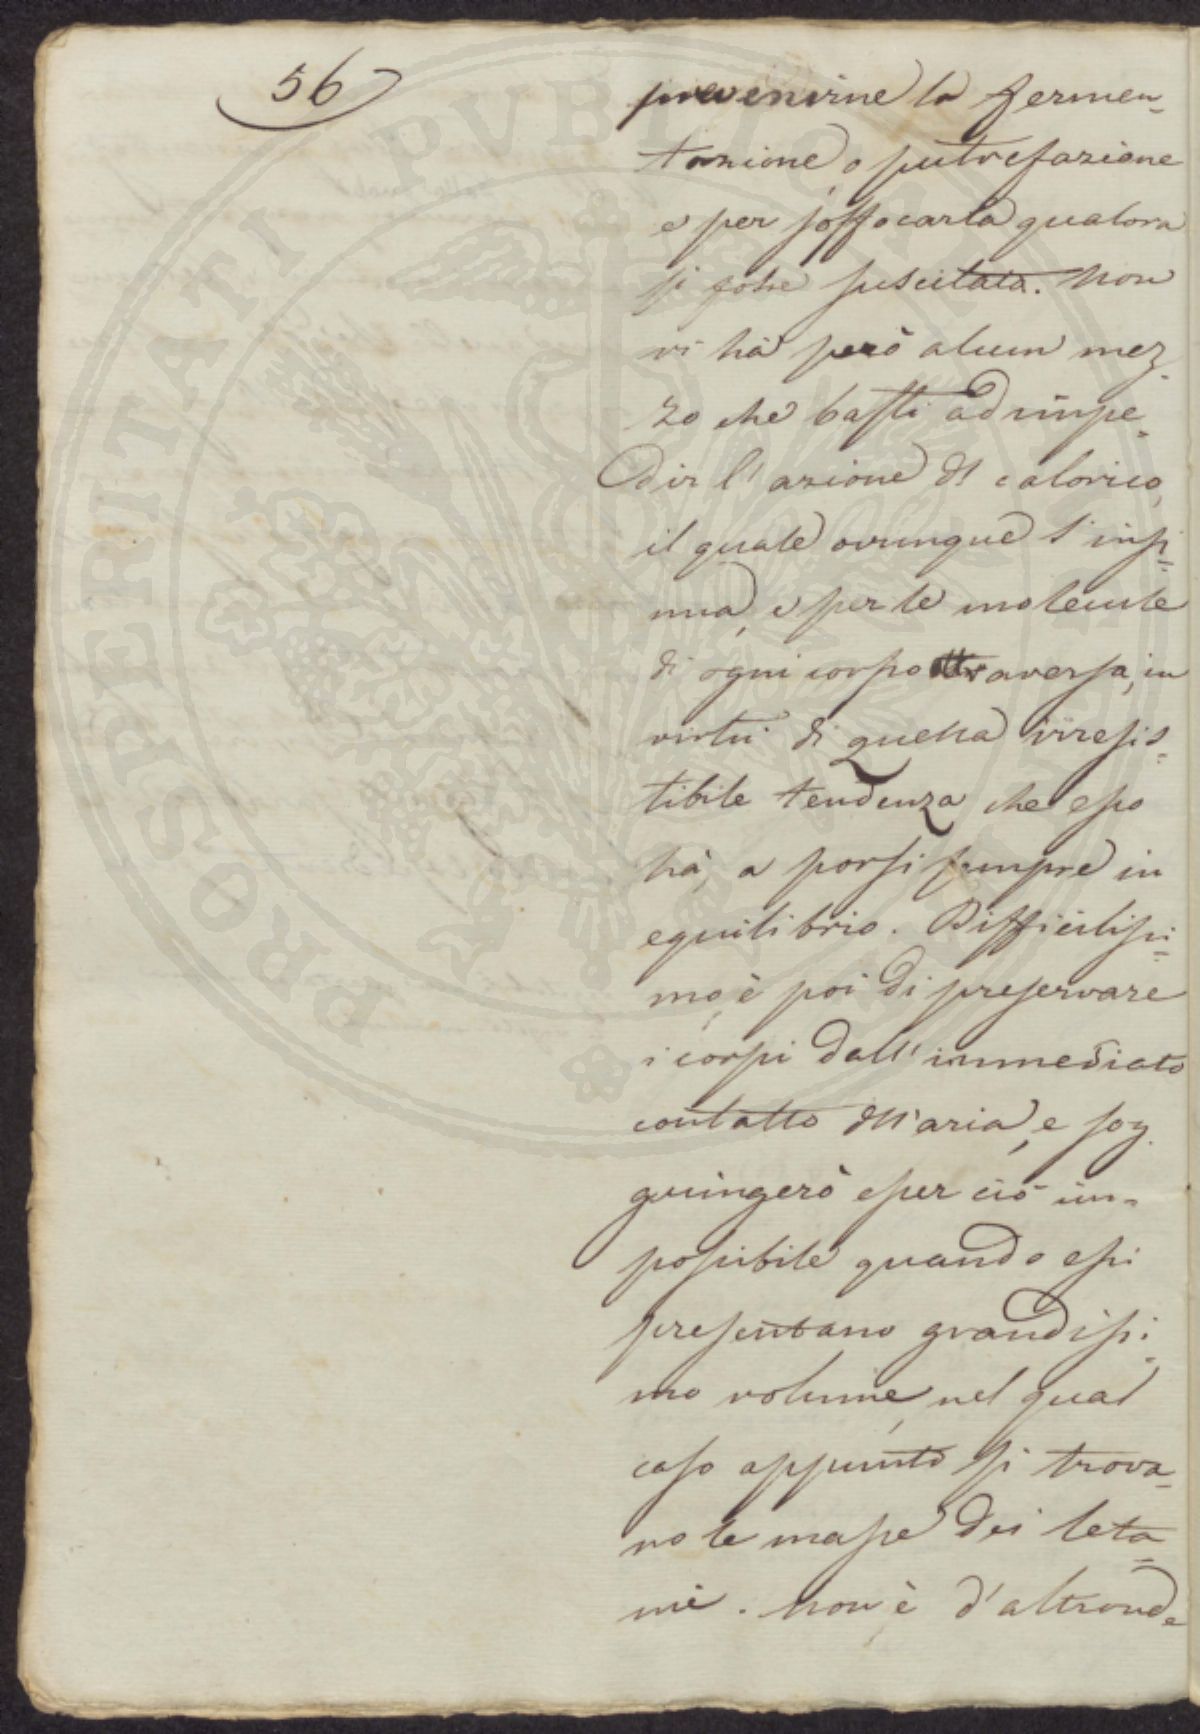 56
prevenirne la fermen=
tazione, o putrefazione
e per soffocarla qualora
si fosse suscitata. Non
vi hà però alcun mez=
zo che basti ad impe=
dir l'azione dl calorico,
il quale ovunque s'insi=
nua, e per le molecule
di ogni corpo attraversa, in
virtù di quella irresis=
tibile tendenza che esso
hà, a porsi sempre in
equilibrio. Difficilissi=
mo, è poi di preservare
i corpi dall'immediato
contatto dll'aria, e sog=
guingerò esser ciò im=
possibile quando essi
presentano grandissi=
mo volume, nel qual
caso appunto si trova=
no le masse dei leta=
mi. Non è d'altronde
PROSPERITATI PVBLICAE